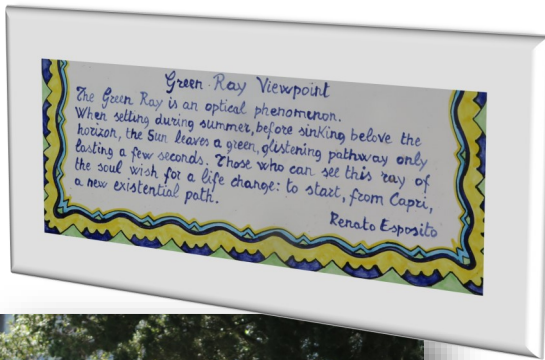 Green Ray Viewpoint
The Green Ray is an optical phenomenon.
When setting during summer, before sinking belove the
horizon, the Sun leaves a green, glistening pathway only
lasting a few seconds. Those who can see this ray of
the soul wish for a life change: to start, from Capri,
a new existential path.
Renato Esposito